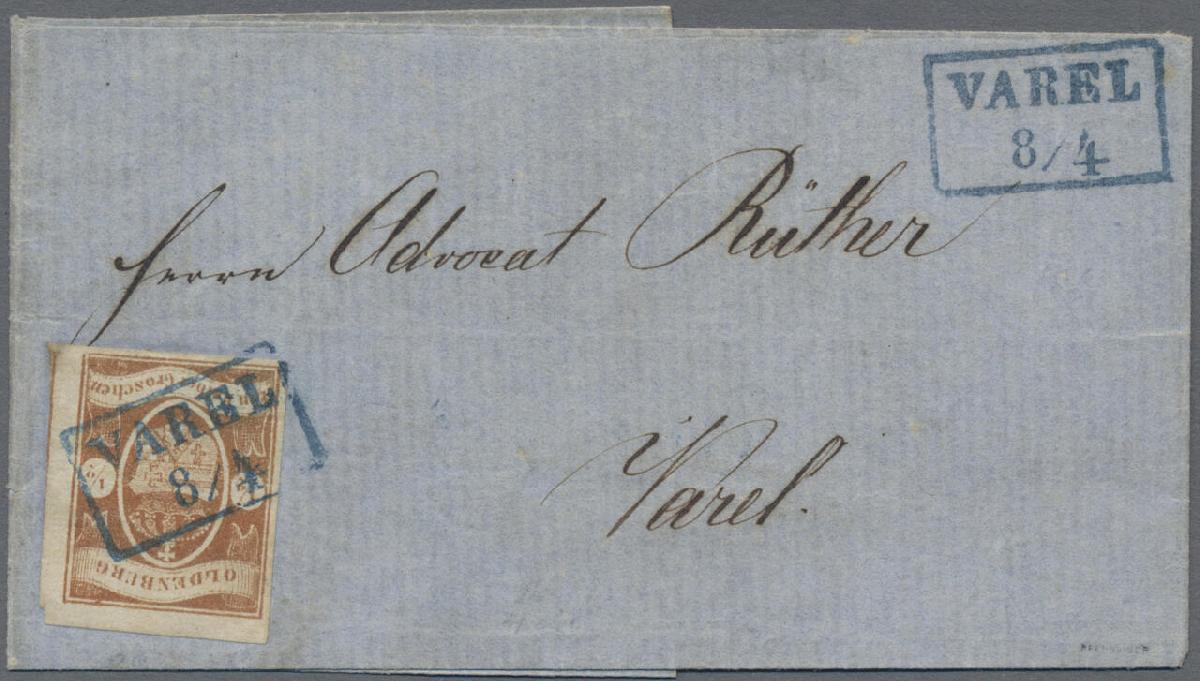 VAREL
8/4
Herrn Advocat Rüther
Varel.
VAREL
8/4
OLDENBURG
groschen